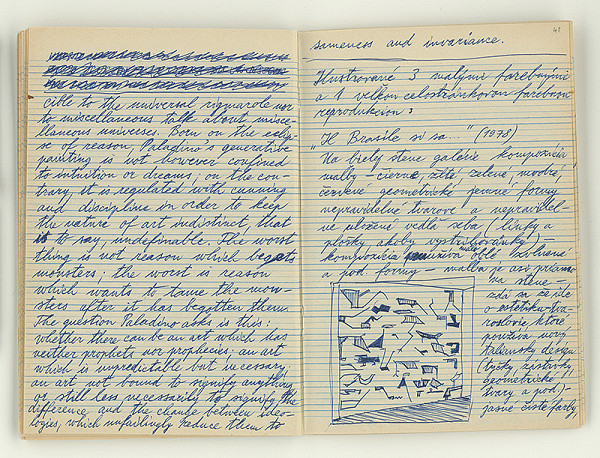 cible to the universal rigmarole nor
to miscellaneous talk about misce-
llaneous universes. Born on the eclip-
se of reason, Paladino's generative
painting is not however confined
to intuition or dreams; on the con-
trary, it is regulated with cunning
and discipline in order to keep
the nature of art indistinct, that
is to say, undefinable. The worst
thing is not reason which begets
monsters: the worst is reason
which wants to tame the mon-
sters after it has begotten them.
The question Paladino asks is this:
whether there can be an art which has
neither prophets nor prophecies; an art
which is unpredictable but necessary,
an art not bound to signify anything
or still less necessarily to signify the
difference and the change between ideo-
logies, which unfailingly reduce them to
41
sameness and invariance.
Ilustrované 3 malými farebnými
a 1 veľkou celostránkovou farebnou
reprodukciou:
"Il Brasile si sa..." (1978)
Na bielej stene galérie kompozícia
maľby – čierne, žlté, zelené, modré,
červené geometrické jemné formy
nepravidelné tvarove a nepravidel-
ne uložené vedľa seba (línky a
plôšky akoby vystrihovánky) –
kompozícia oblé
a pod. formy – maľba je asi priamo
na stene –
zdá sa že ide
o estetiku tva-
roslovia, ktoré
používa nový
taliansky design
(bytky, zástrčky
geometrické
tvary a pod.) –
jasné čisté farby